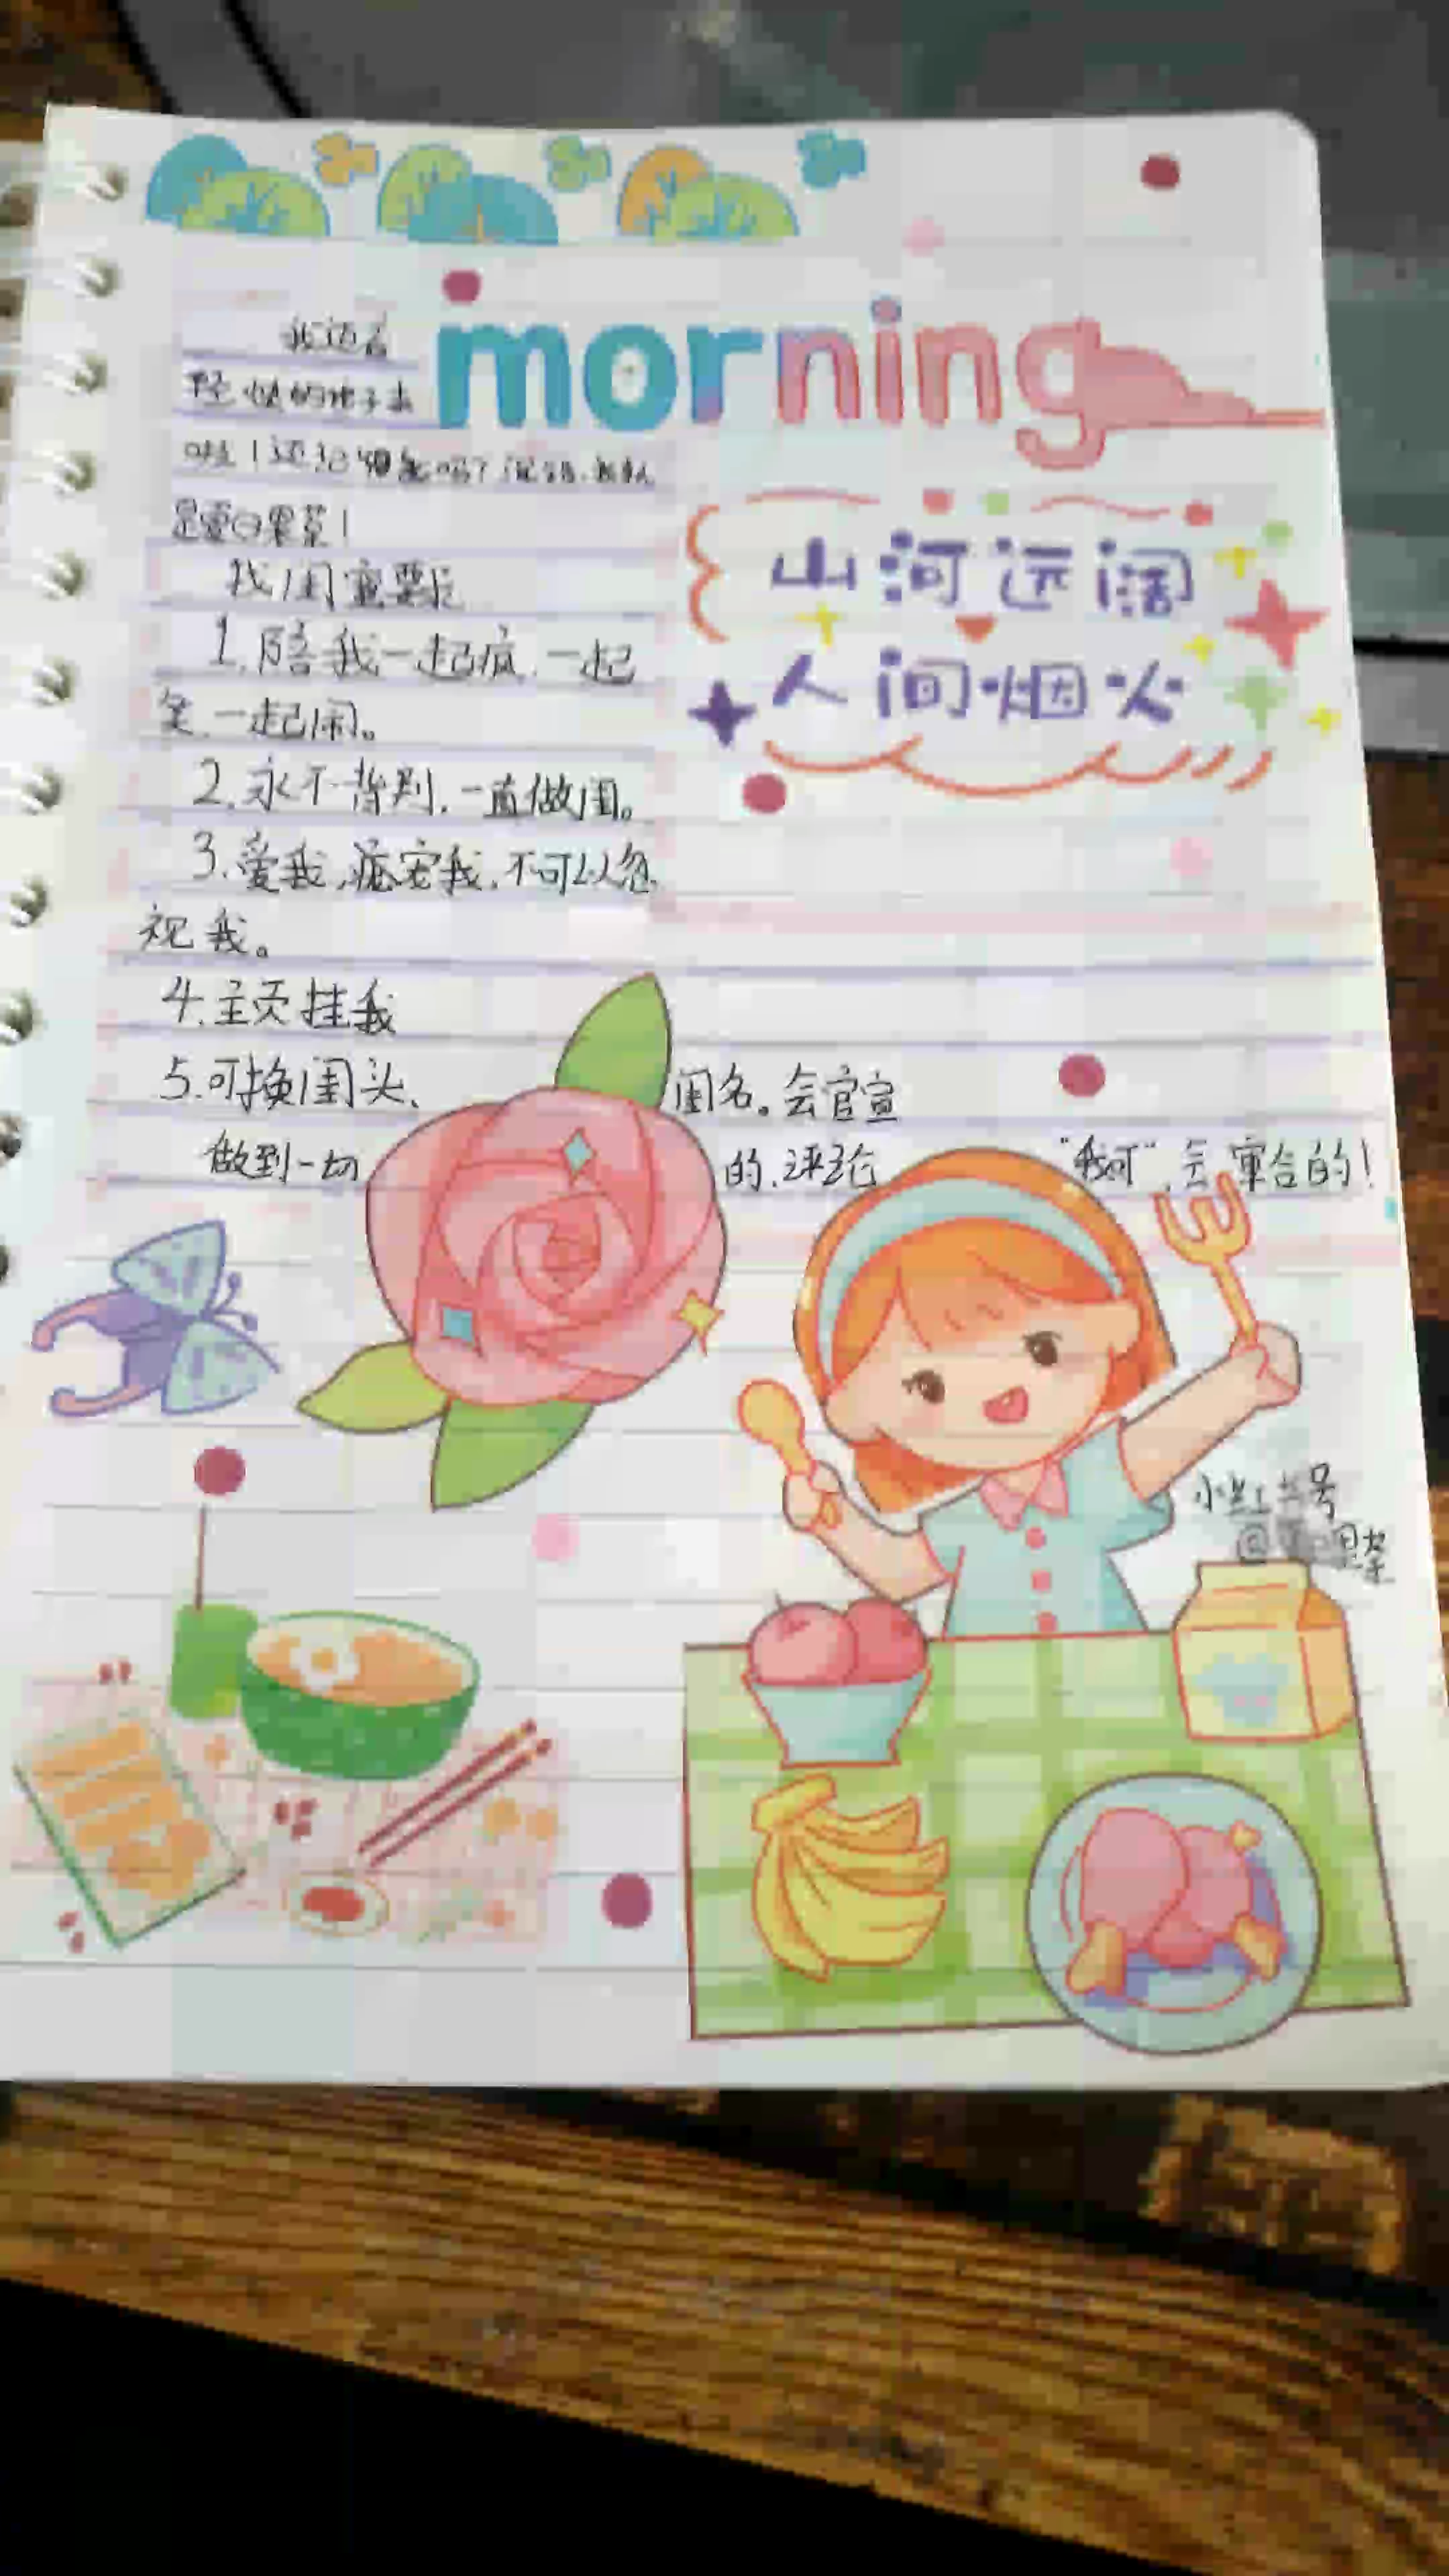 morning
我迈着
轻快的步子来
啦！还记得我吗？没错，我就
是
山河远阔
人间烟火
找闺蜜要求
1.陪我一起疯，一起
笑，一起闹。
2.永不背叛，一直做闺。
3.爱我，疼宠我，不可以忽
视我。
4.主页挂我
5.可换闺头、闺名。会官宣
做到一切的，评论“我可”，会审合的！
小红书号